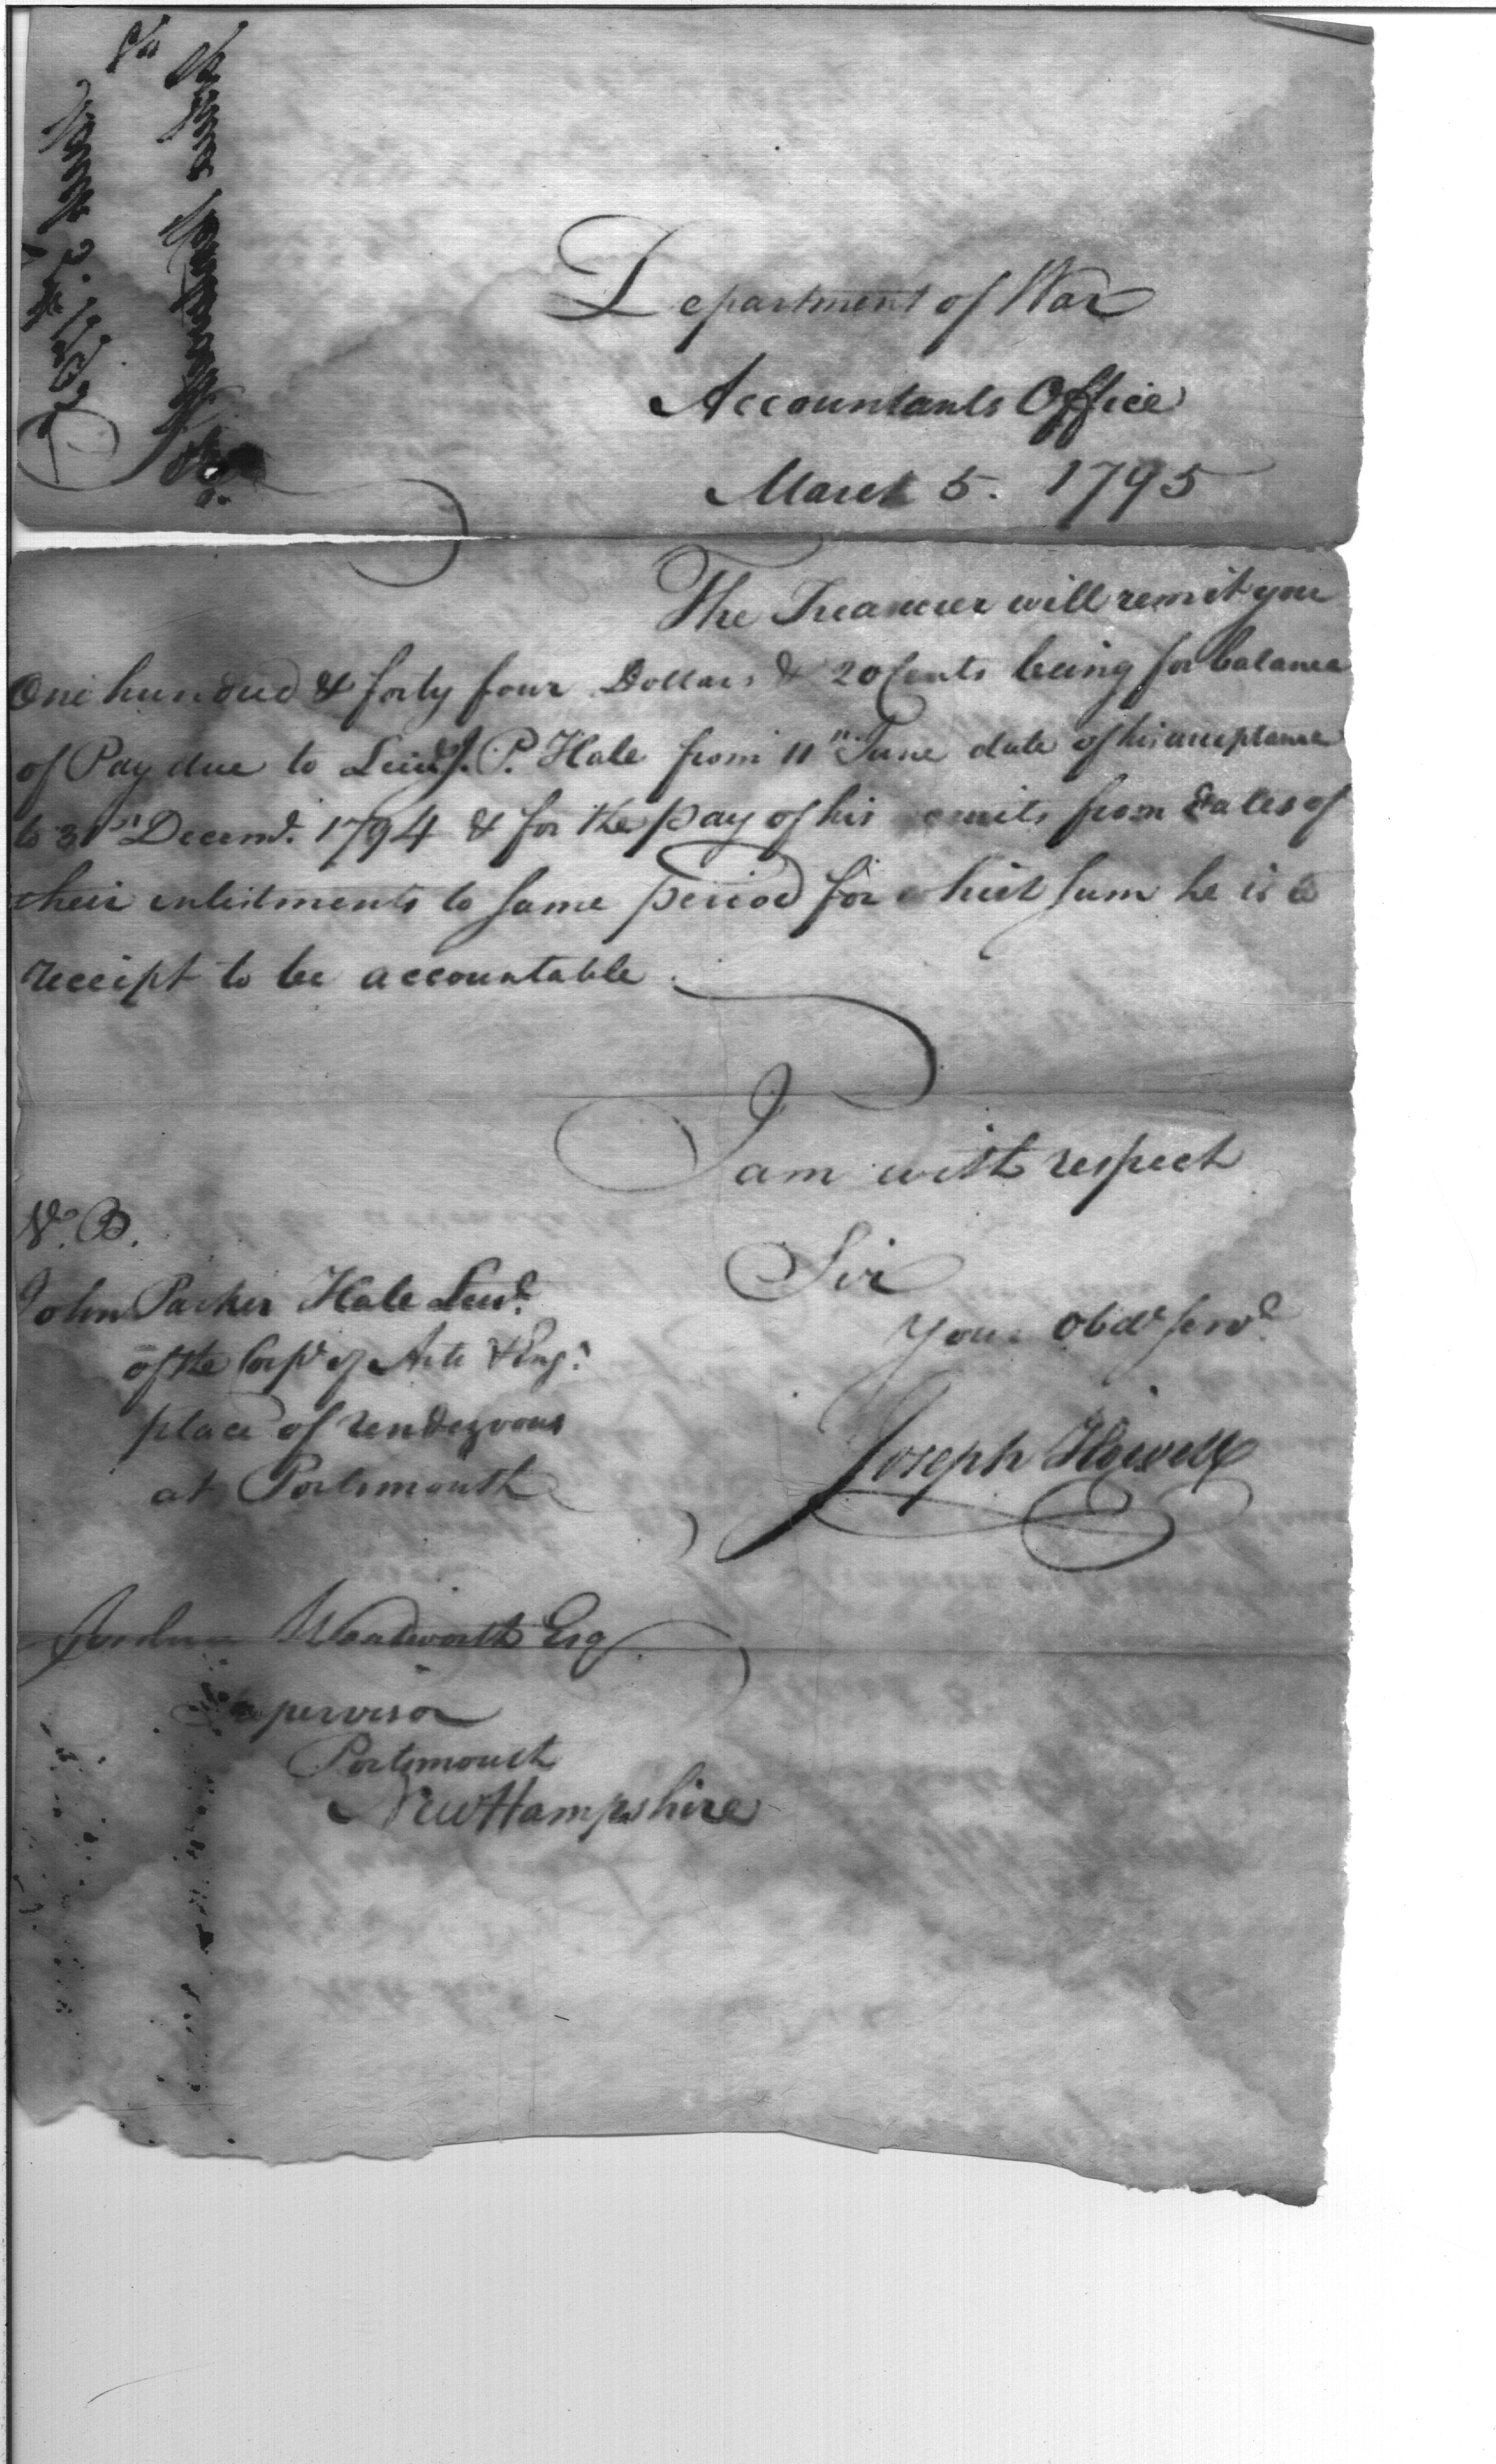 Department of War
Accountants Office
March 5. 1795
The Treasurer will remit you
One hundred & forty four Dollars & 20 Cents being for balance
of Pay due to Lieut J. P. Hale from 11th June date of his acceptance
to 31st Decemr. 1794 & for the pay of his ecruits from dates of
their enlistments to same period for which sum he is to
receipt to be accountable.
I am with respect
Sir
Your Obdt Servt
Joseph Howell
N. B.
John Parker Hale Lieut.
of the Corps of Arts & Engs.
place of rendezvous
at Portsmouth
Joshua Wentworth Esq
Supervisor
Portsmouth
New Hampshire